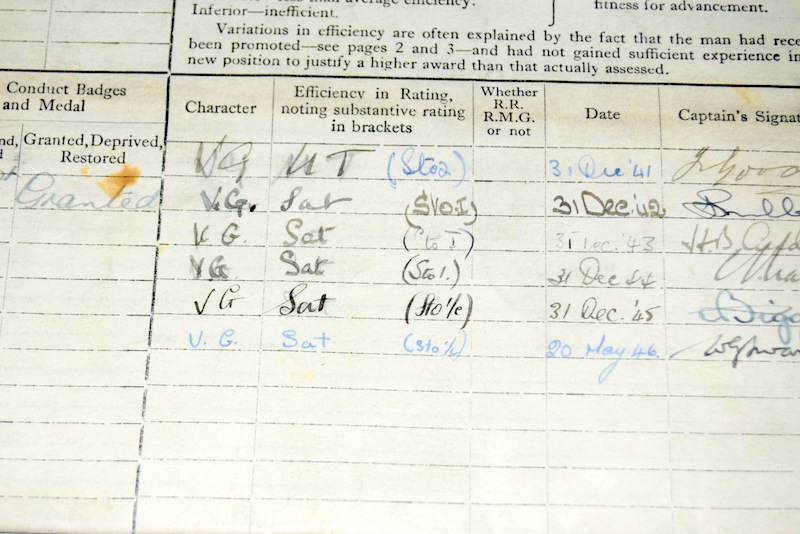 less than average efficiency.
Inferior—inefficient.
fitness for advancement.
Variations in efficiency are often explained by the fact that the man had rece
been promoted—see pages 2 and 3—and had not gained sufficient experience in
new position to justify a higher award than that actually assessed.
Conduct Badges and Medal
Granted, Deprived, Restored
Character
Efficiency in Rating, noting substantive rating in brackets
Whether R.R. R.M.G. or not
Date
Captain's Signat
VG UT (Sto2) 31 Dec '41
Granted V.G. Sat 31 Dec. '42
V G. Sat (Sto I) 31 Dec. '43
VG Sat (Sto 1.) 31 Dec 44
V G Sat (Sto 1/c) 31 Dec. '45
V. G. Sat (Sto 1/c) 20 May 46